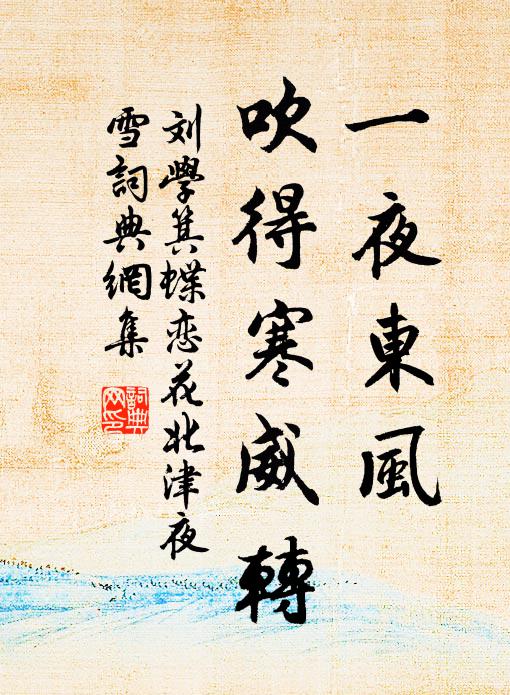 一夜東風
吹得寒威轉
刘學箕蝶恋花北津夜
雪詞典網集
詞典
网印